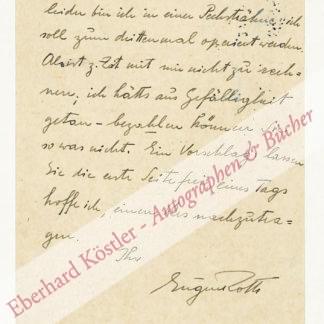 leider bin ich in einer Pechsträhne: ich
soll zum drittenmal operiert werden.
Also ist z. Zt mit mir nicht zu rech-
nen; ich hätts aus Gefälligkeit
getan - bezahlen können Sie
so was nicht. Ein Vorschlag: lassen
Sie die erste Seite frei, eines Tags
hoffe ich, einen nachzutra-
gen.
Ihr
Eugen Roth
Eberhard Köstler - Autographen & Bücher